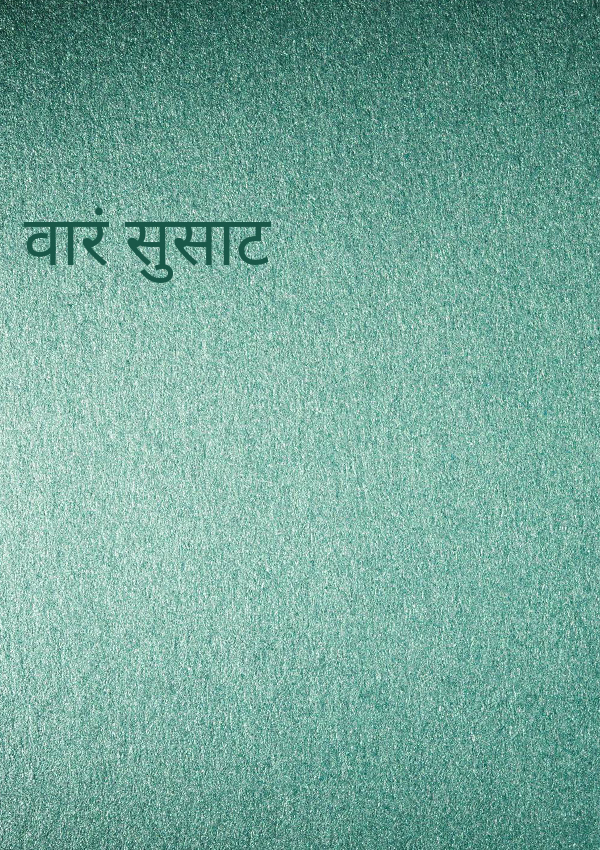 वारं सुसाट